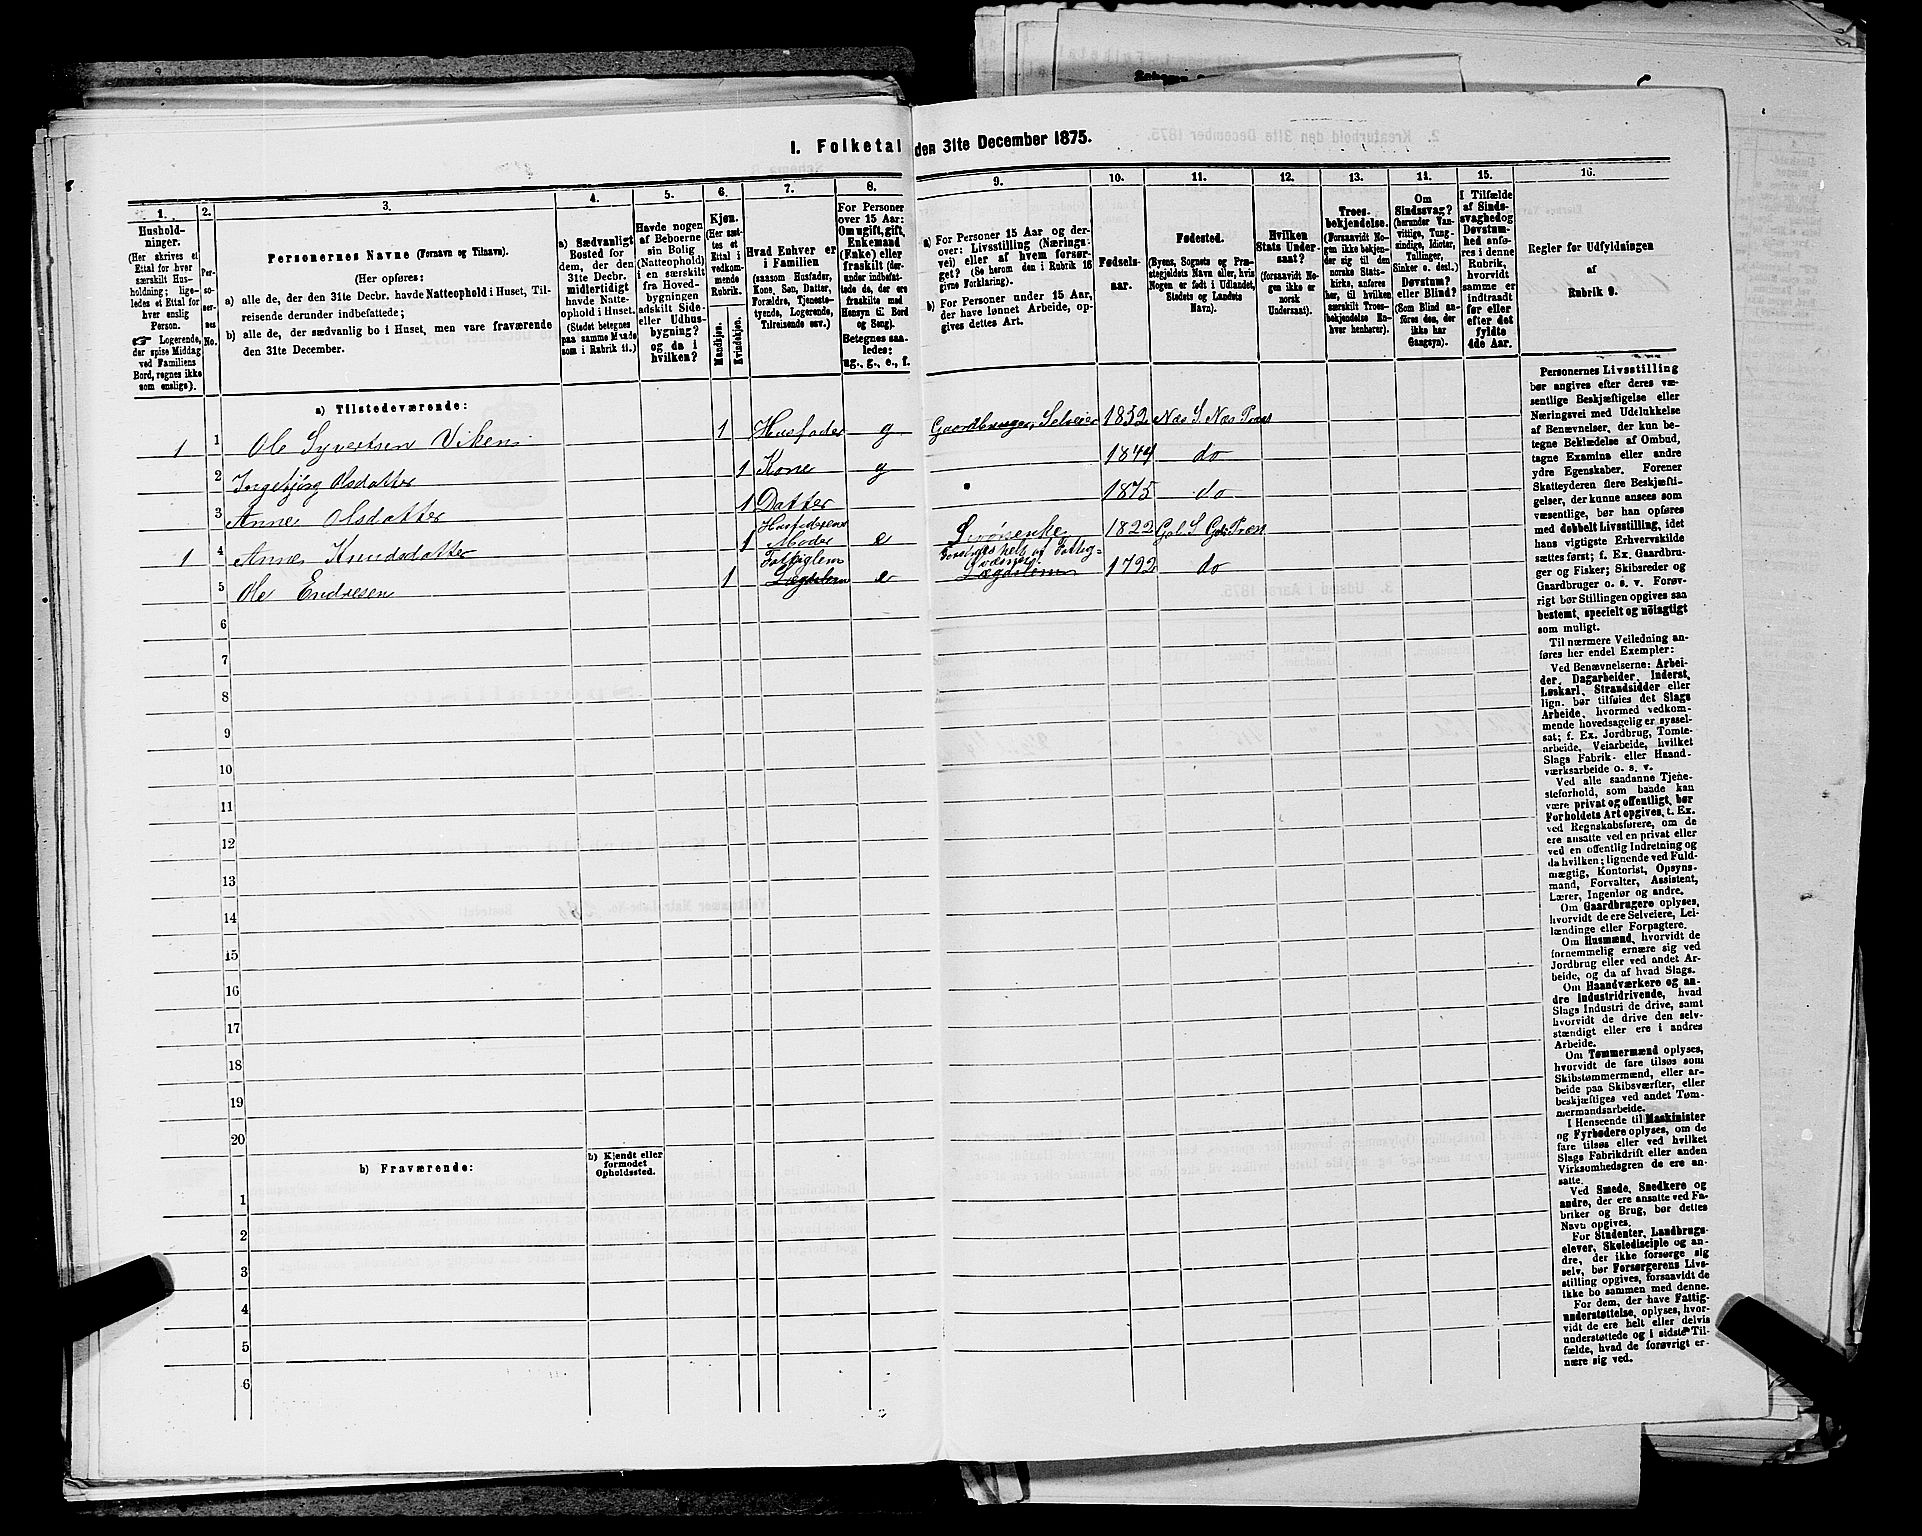 I. Folketal den 31te December 1875.
1.
2.
3.
4.
5.
6.
7.
8.
9.
10.
11.
12.
13.
14.
15.
16.
Hushold-
ninger.
(Her skrives et
Ettal for hver
særskilt Hus-
holdning; lige-
ledes et Ettal for
hver enslig
Person.
☞ Logerende,
der spise Middag
ved Familiens
Bord, regnes ikke
som enslige).
Per-
so-
ner-
nes
No.
Personernes Navne (Fornavn og Tilnavn).
(Her opføres:
a) alle de, der den 31te Decbr. havde Natteophold i Huset, Til-
reisende derunder indbefattede;
b) alle de, der sædvanlig bo i Huset, men vare fraværende
den 31te December.
a) Sædvanligt
Bosted for
dem, der den
31te Decbr.
midlertidigt
havde Natte-
ophold i Huset.
(Stedet betegnes
paa samme Maade
som i Rubrik 11.)
Havde nogen
af Beboerne
sin Bolig
(Natteophold)
i en særskilt
fra Hoved-
bygningen
adskilt Side-
eller Udhus-
bygning?
og da i
hvilken?
Kjøn.
(Her sæt-
tes et
Ettal i
vedkom-
mende
Rubrik.
Mandkjøn.
Kvindekjøn.
Hvad Enhver er
i Familien
(saasom Husfader,
Kone, Søn, Datter,
Forældre, Tjeneste-
tyende, Logerende,
Tilreisende osv.)
For Personer
over 15 Aar:
Om ugift, gift,
Enkemand
(Enke) eller
fraskilt (der-
under indbefat-
tede de, der ere
fraskilte med
Hensyn til Bord
og Seng).
Betegnes saa-
ledes:
ug., g., e., f.
a) For Personer 15 Aar og der-
over: Livsstilling (Nærings-
vei) eller af hvem forsør-
get? (Se herom den i Rubrik 16
givne Forklaring).
b) For Personer under 15 Aar,
der have lønnet Arbeide, op-
gives dettes Art.
Fødsels-
aar.
Fødested.
(Byens, Sognets og Præ-
stegjeldets Navn eller, hvis
Nogen er født i Udlandet,
Stedets og Landets
Navn).
Hvilken
Stats Under-
saat?
(forsaavidt No-
gen ikke er
norsk
Undersaat).
Troes-
bekjendelse.
(Forsaavidt No-
gen ikke bekjen-
der sig til den
norske Stats-
kirke, anføres
her, til hvilken
særskilt Troes-
bekjendelse En-
hver henhører).
Om
Sindssvag?
(herunder Van-
vittige, Tung-
sindige, Idioter,
Tullinger,
Sinker o. desl.)
Døvstum?
eller Blind?
(Som Blind an-
føres den, der
ikke har
Gangsyn).
I Tilfælde
af Sinds-
svaghed og
Døvstum-
hed anfø-
res i denne
Rubrik,
hvorvidt
samme er
indtraadt
før eller
efter det
fyldte
4de Aar.
Regler for Udfyldningen
af
Rubrik 9.
a) Tilstedeværende:
1 1 Ole Syvertsen Viken 1 Husfader g Gaardbruger, Selveier 1852 Næs S. Næs Præst
2 Ingebjørg Olsdatter 1 Kone g 1849 do
3 Anne Olsdatter 1 Datter 1875 do
1 4 Anne Knudsdatter 1 Husfaderens Moder e 1822 Gol S. Præst
5 Ole Endresen 1 Fattiglem Lægdslem e Lægdslem 1792 do
6
7
8
9
10
11
12
13
14
15
16
17
18
19
20
b) Fraværende:
b) Kjendt eller
formodet
Opholdssted.
1
2
3
4
5
6
Personernes Livsstilling
bør angives efter deres væ-
sentlige Beskjæftigelse eller
Næringsvei med Udelukkelse
af Benævnelser, der kun be-
tegne Beklædelse af Ombud,
tagne Examina eller andre
ydre Egenskaber. Forener
Skatteyderen flere Beskjæfti-
gelser, der kunne ansees som
væsentlige, bør han opføres
med dobbelt Livsstilling, idet
hans vigtigste Erhvervskilde
sættes først; f. Ex. Gaardbru-
ger og Fisker; Skibsreder og
Gaardbruger o. s. v. Forøv-
rigt bør Stillingen opgives saa
bestemt, specielt og nöiagtigt
som muligt.
Til nærmere Veiledning an-
føres her endel Exempler:
Ved Benævnelserne: Arbei-
der, Dagarbeider, Inderst,
Løskarl, Strandsidder eller
lign. bør tilføies det Slags
Arbeide, hvormed vedkom-
mende hovedsagelig er syssel-
sat; f. Ex. Jordbrug, Tomte-
arbeide, Veiarbeide, hvilket
Slags Fabrik- eller Haand-
værksarbeide o. s. v.
Ved alle saadanne Tjene-
steforhold, som baade kan
være privat og offentligt, bør
Forholdets Art opgives, t. Ex.
ved Regnskabsførere, om de
ere ansatte ved en privat eller
ved en offentlig Indretning og
da hvilken; lignende ved Fuld-
mægtig, Kontorist, Opsyns-
mand, Forvalter, Assistent,
Lærer, Ingeniør og andre.
Om Gaardbrugere oplyses,
hvorvidt de ere Selveiere, Lei-
lændinge eller Forpagtere.
Om Husmænd, hvorvidt de
fornemmelig ernære sig ved
Jordbrug eller ved andet Ar-
beide, og da af hvad Slags.
Om Haandværkere og an-
dre Industridrivende, hvad
Slags Industri de drive, samt
hvorvidt de drive den selv-
stændigt eller ere i andres
Arbeide.
Om Tømmermænd oplyses,
hvorvidt de fare tilsøs som
Skibstømmermænd, eller ar-
beide paa Skibsværfter, eller
beskjæftiges ved andet Tøm-
mermandsarbeide.
I Henseende til Maskinister
og Fyrbødere oplyses, om de
fare tilsøs eller ved hvilket
Slags Fabrikdrift eller anden
Virksomhedsgren de ere an-
satte.
Ved Smede, Snedkere og
andre, der ere ansatte ved Fa-
briker og Brug, bør dettes
Navn opgives.
For Studenter, Landbrugs-
elever, Skoledisciple og an-
dre, der ikke forsørge sig
selv, bør Forsørgerens Livs-
stilling opgives, forsaavidt de
ikke bo sammen med denne.
For dem, der have Fattig-
understøttelse, oplyses, hvor-
vidt de ere helt eller delvis
understøttede og i sidste Til-
fælde, hvad de forøvrigt er-
nære sig ved.